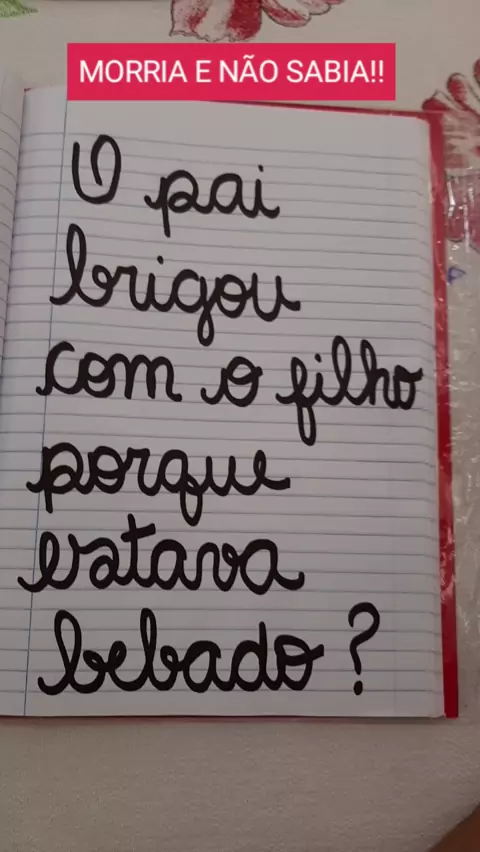 MORRIA E NÃO SABIA!!
O pai
brigou
com o filho
porque
estava
bebado?